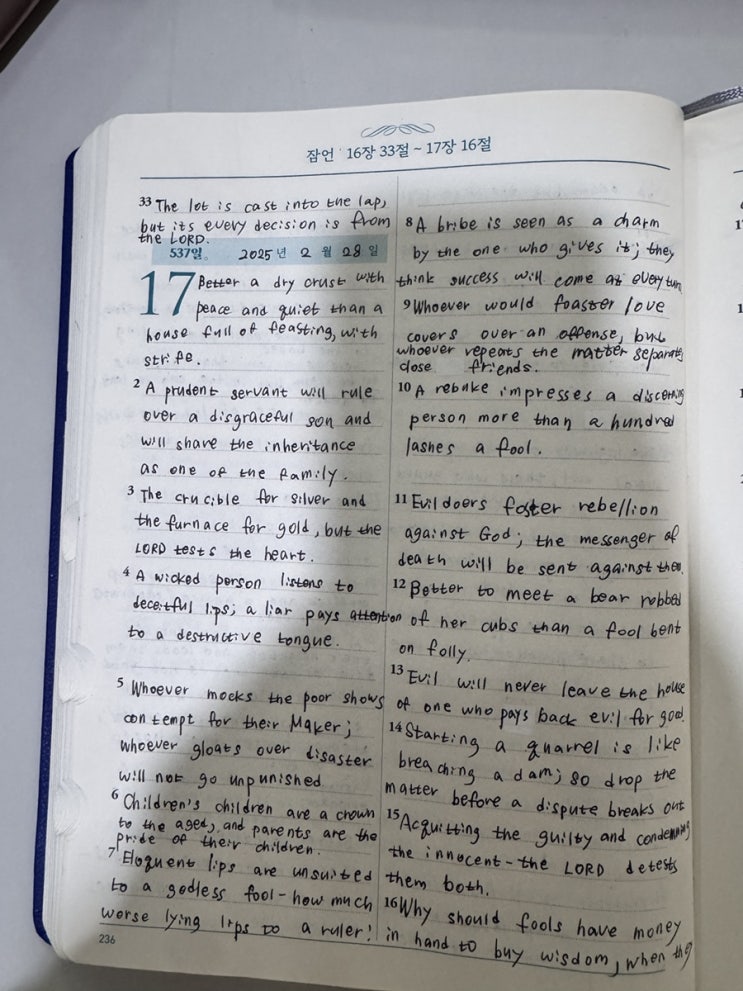 잠언 16장 33절 ~ 17장 16절
33 The lot is cast into the lap,
but its every decision is from
the LORD.
537일. 2025년 2월 28일
17 Better a dry crust with
peace and quiet than a
house full of feasting, with
strife.
2 A prudent servant will rule
over a disgraceful son and
will share the inheritance
as one of the family.
3 The crucible for silver and
the furnace for gold, but the
LORD tests the heart.
4 A wicked person listens to
deceitful lips; a liar pays attention
to a destructive tongue.
5 Whoever mocks the poor shows
contempt for their Maker;
whoever gloats over disaster
will not go unpunished.
6 Children's children are a crown
to the aged, and parents are the
pride of their children.
7 Eloquent lips are unsuited
to a godless fool - how much
worse lying lips to a ruler!
236
8 A bribe is seen as a charm
by the one who gives it; they
think success will come at every turn
9 Whoever would foaster love
covers over an offense, but
whoever repeats the matter separates
close friends.
10 A rebuke impresses a discerning
person more than a hundred
lashes a fool.
11 Evildoers foster rebellion
against God; the messenger of
death will be sent against them.
12 Better to meet a bear robbed
of her cubs than a fool bent
on folly.
13 Evil will never leave the house
of one who pays back evil for good.
14 Starting a quarrel is like
breaching a dam; so drop the
matter before a dispute breaks out
15 Acquitting the guilty and condemning
the innocent - the LORD detests
them both.
16 Why should fools have money
in hand to buy wisdom, when they